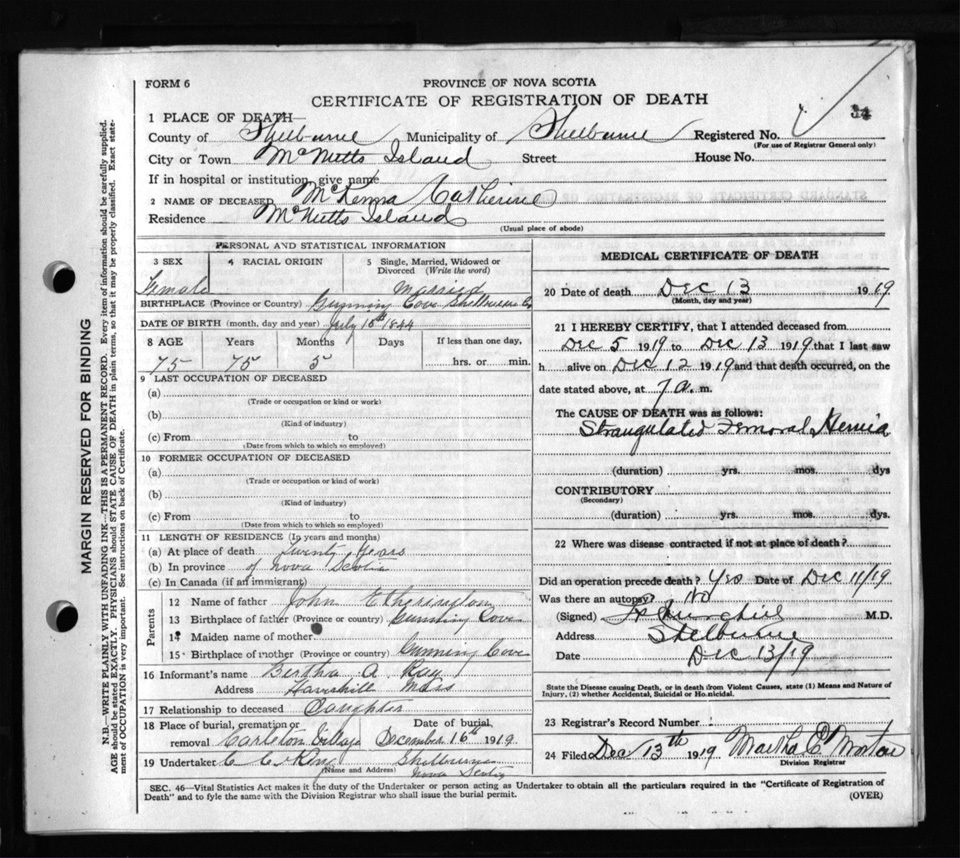 FORM 6
PROVINCE OF NOVA SCOTIA
CERTIFICATE OF REGISTRATION OF DEATH
34
1 PLACE OF DEATH
County of Shelburne Municipality of Shelburne Registered No.
(For use of Registrar General only)
City or Town McNutts Island Street House No.
If in hospital or institution, give name
2 NAME OF DECEASED McKenna Catherine
Residence McNutts Island
(Usual place of abode)
PERSONAL AND STATISTICAL INFORMATION
3 SEX 4 RACIAL ORIGIN 5 Single, Married, Widowed or Divorced (Write the word)
Female Married
BIRTHPLACE (Province or Country) Gunning Cove Shelburne Co
DATE OF BIRTH (month, day and year) July 15th 1844
8 AGE Years Months Days If less than one day,
75 75 5 hrs. or min.
9 LAST OCCUPATION OF DECEASED
(a)
(Trade or occupation or kind or work)
(b)
(Kind of industry)
(c) From to
(Date from which to which so employed)
10 FORMER OCCUPATION OF DECEASED
(a)
(Trade or occupation or kind of work)
(b)
(Kind of industry)
(c) From to
(Date from which to which so employed)
11 LENGTH OF RESIDENCE (In years and months)
(a) At place of death Twenty Years
(b) In province of Nova Scotia
(c) In Canada (if an immigrant)
Parents
12 Name of father John Etherington
13 Birthplace of father (Province or country) Gunning Cove
14 Maiden name of mother
15 Birthplace of mother (Province or country) Gunning Cove
16 Informant's name Bertha A Ray
Address Mass
17 Relationship to deceased Daughter
18 Place of burial, cremation or removal Carleton Village Date of burial, December 16th 1919
19 Undertaker C C King Shelburne
(Name and Address) Nova Scotia
MEDICAL CERTIFICATE OF DEATH
20 Date of death Dec 13 1919
(Month, day and year)
21 I HEREBY CERTIFY, that I attended deceased from
Dec 5 1919 to Dec 13 1919 that I last saw
h alive on Dec 12 1919 and that death occurred, on the
date stated above, at 7 a. m.
The CAUSE OF DEATH was as follows:
Strangulated Femoral Hernia
(duration) yrs. mos. dys
CONTRIBUTORY
(Secondary)
(duration) yrs. mos. dys.
22 Where was disease contracted if not at place of death?
Did an operation precede death? Yes Date of Dec 11/19
Was there an autopsy? No
(Signed) M.D.
Address Shelburne
Date Dec 13/19
State the Disease causing Death, or in death from Violent Causes, state (1) Means and Nature of
Injury, (2) whether Accidental, Suicidal or Homicidal.
23 Registrar's Record Number
24 Filed Dec 13th 1919 Martha C Morton
Division Registrar
SEC. 46—Vital Statistics Act makes it the duty of the Undertaker or person acting as Undertaker to obtain all the particulars required in the "Certificate of Registration of
Death" and to fyle the same with the Division Registrar who shall issue the burial permit.
(OVER)
MARGIN RESERVED FOR BINDING
N.B.—WRITE PLAINLY WITH UNFADING INK—THIS IS A PERMANENT RECORD. Every item of information should be carefully supplied.
AGE should be stated EXACTLY. PHYSICIANS should STATE CAUSE OF DEATH in plain terms, so that it may be properly classified. Exact statement of OCCUPATION is very important. See instructions on back of Certificate.